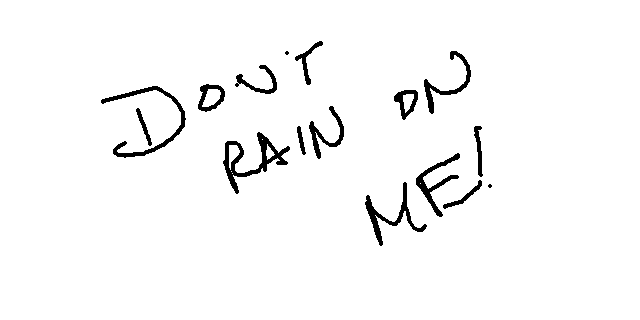 DON'T
RAIN ON
ME!